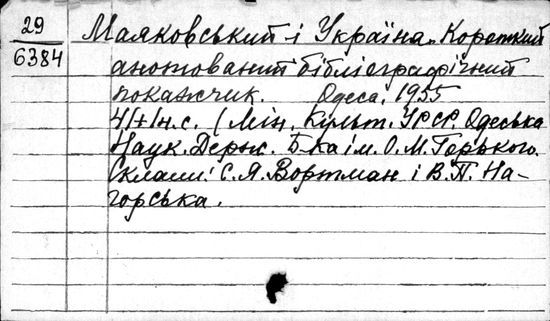 29
6384
Маяковський і Україна. Короткий
анотований бібліографічний
покажчик. Одеса. 1955
4/+/н.с. (Мін. Культ. УРСР. Одеська
Наук. Держ. Б-ка ім. О.М. Горького.
Склали: С.Я. Вортман і В.П. На-
горська.